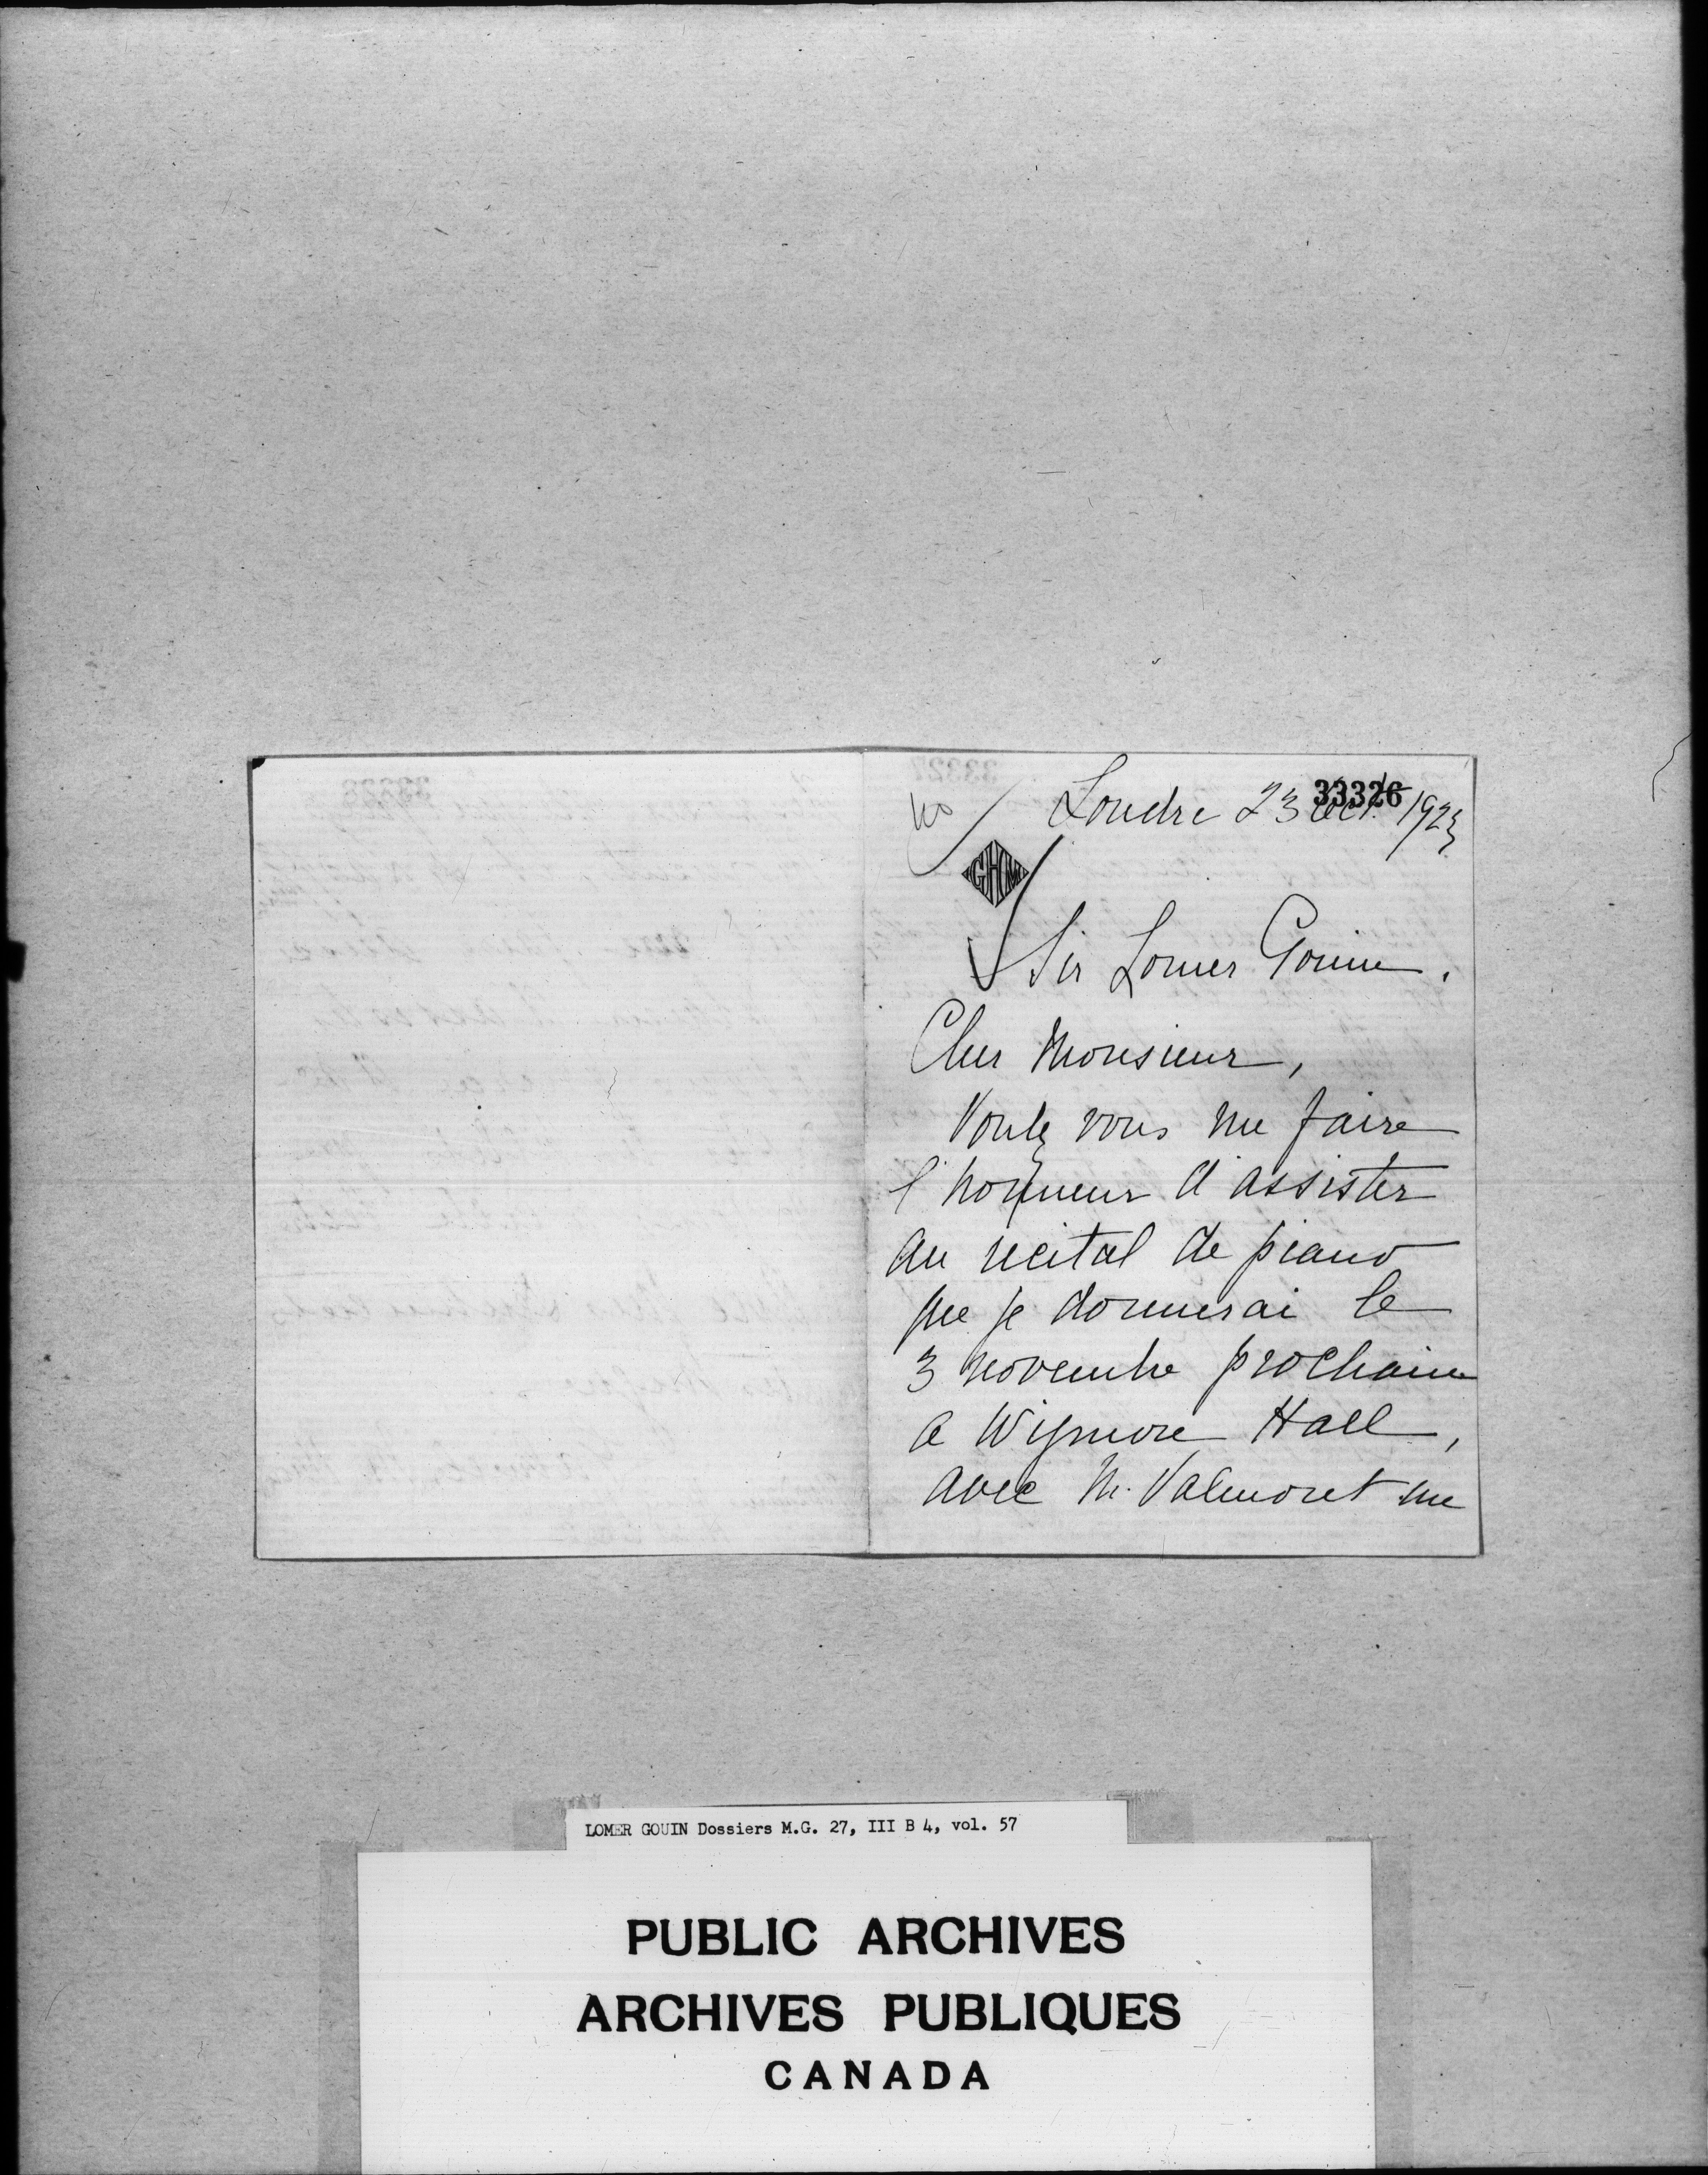 33326
Londre 23 Oct. 1923
GHM
Sir Lomer Gouin.
Cher Monsieur,
Voulez vous me faire
l'honneur d'assister
au recital de piano
que je donnerai le
3 novembre prochain
a Wigmore Hall,
avec M. Valmoret me
LOMER GOUIN Dossiers M.G. 27, III B 4, vol. 57
PUBLIC ARCHIVES
ARCHIVES PUBLIQUES
CANADA